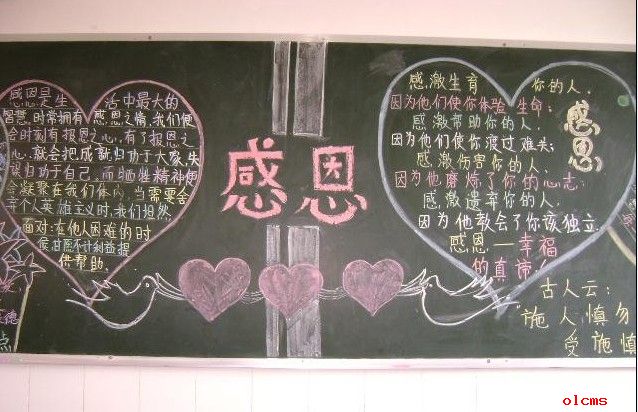 感恩是生 活中最大的
智慧.时常拥有 感恩之情,我们便
会时刻有报恩之心,有了报恩之
心,就会把成就归功于大家,失
归功于自己,而牺牲精神便
会凝聚在我们体内,当需要舍
弃个人英雄主义时,我们坦然
面对:在他人困难的时
不计利益提
供帮助.
感恩
感激生育 你的人.
因为他们使你体验生命;
感激帮助你的人.
因为他们使你渡过难关;
感激伤害你的人.
因为他磨炼了你的心志;
感激遗弃你的人.
因为他教会了你该独立.
感恩一幸福
的真谛!
感恩
古人云:
施人慎勿
受施慎
德
点
olcms